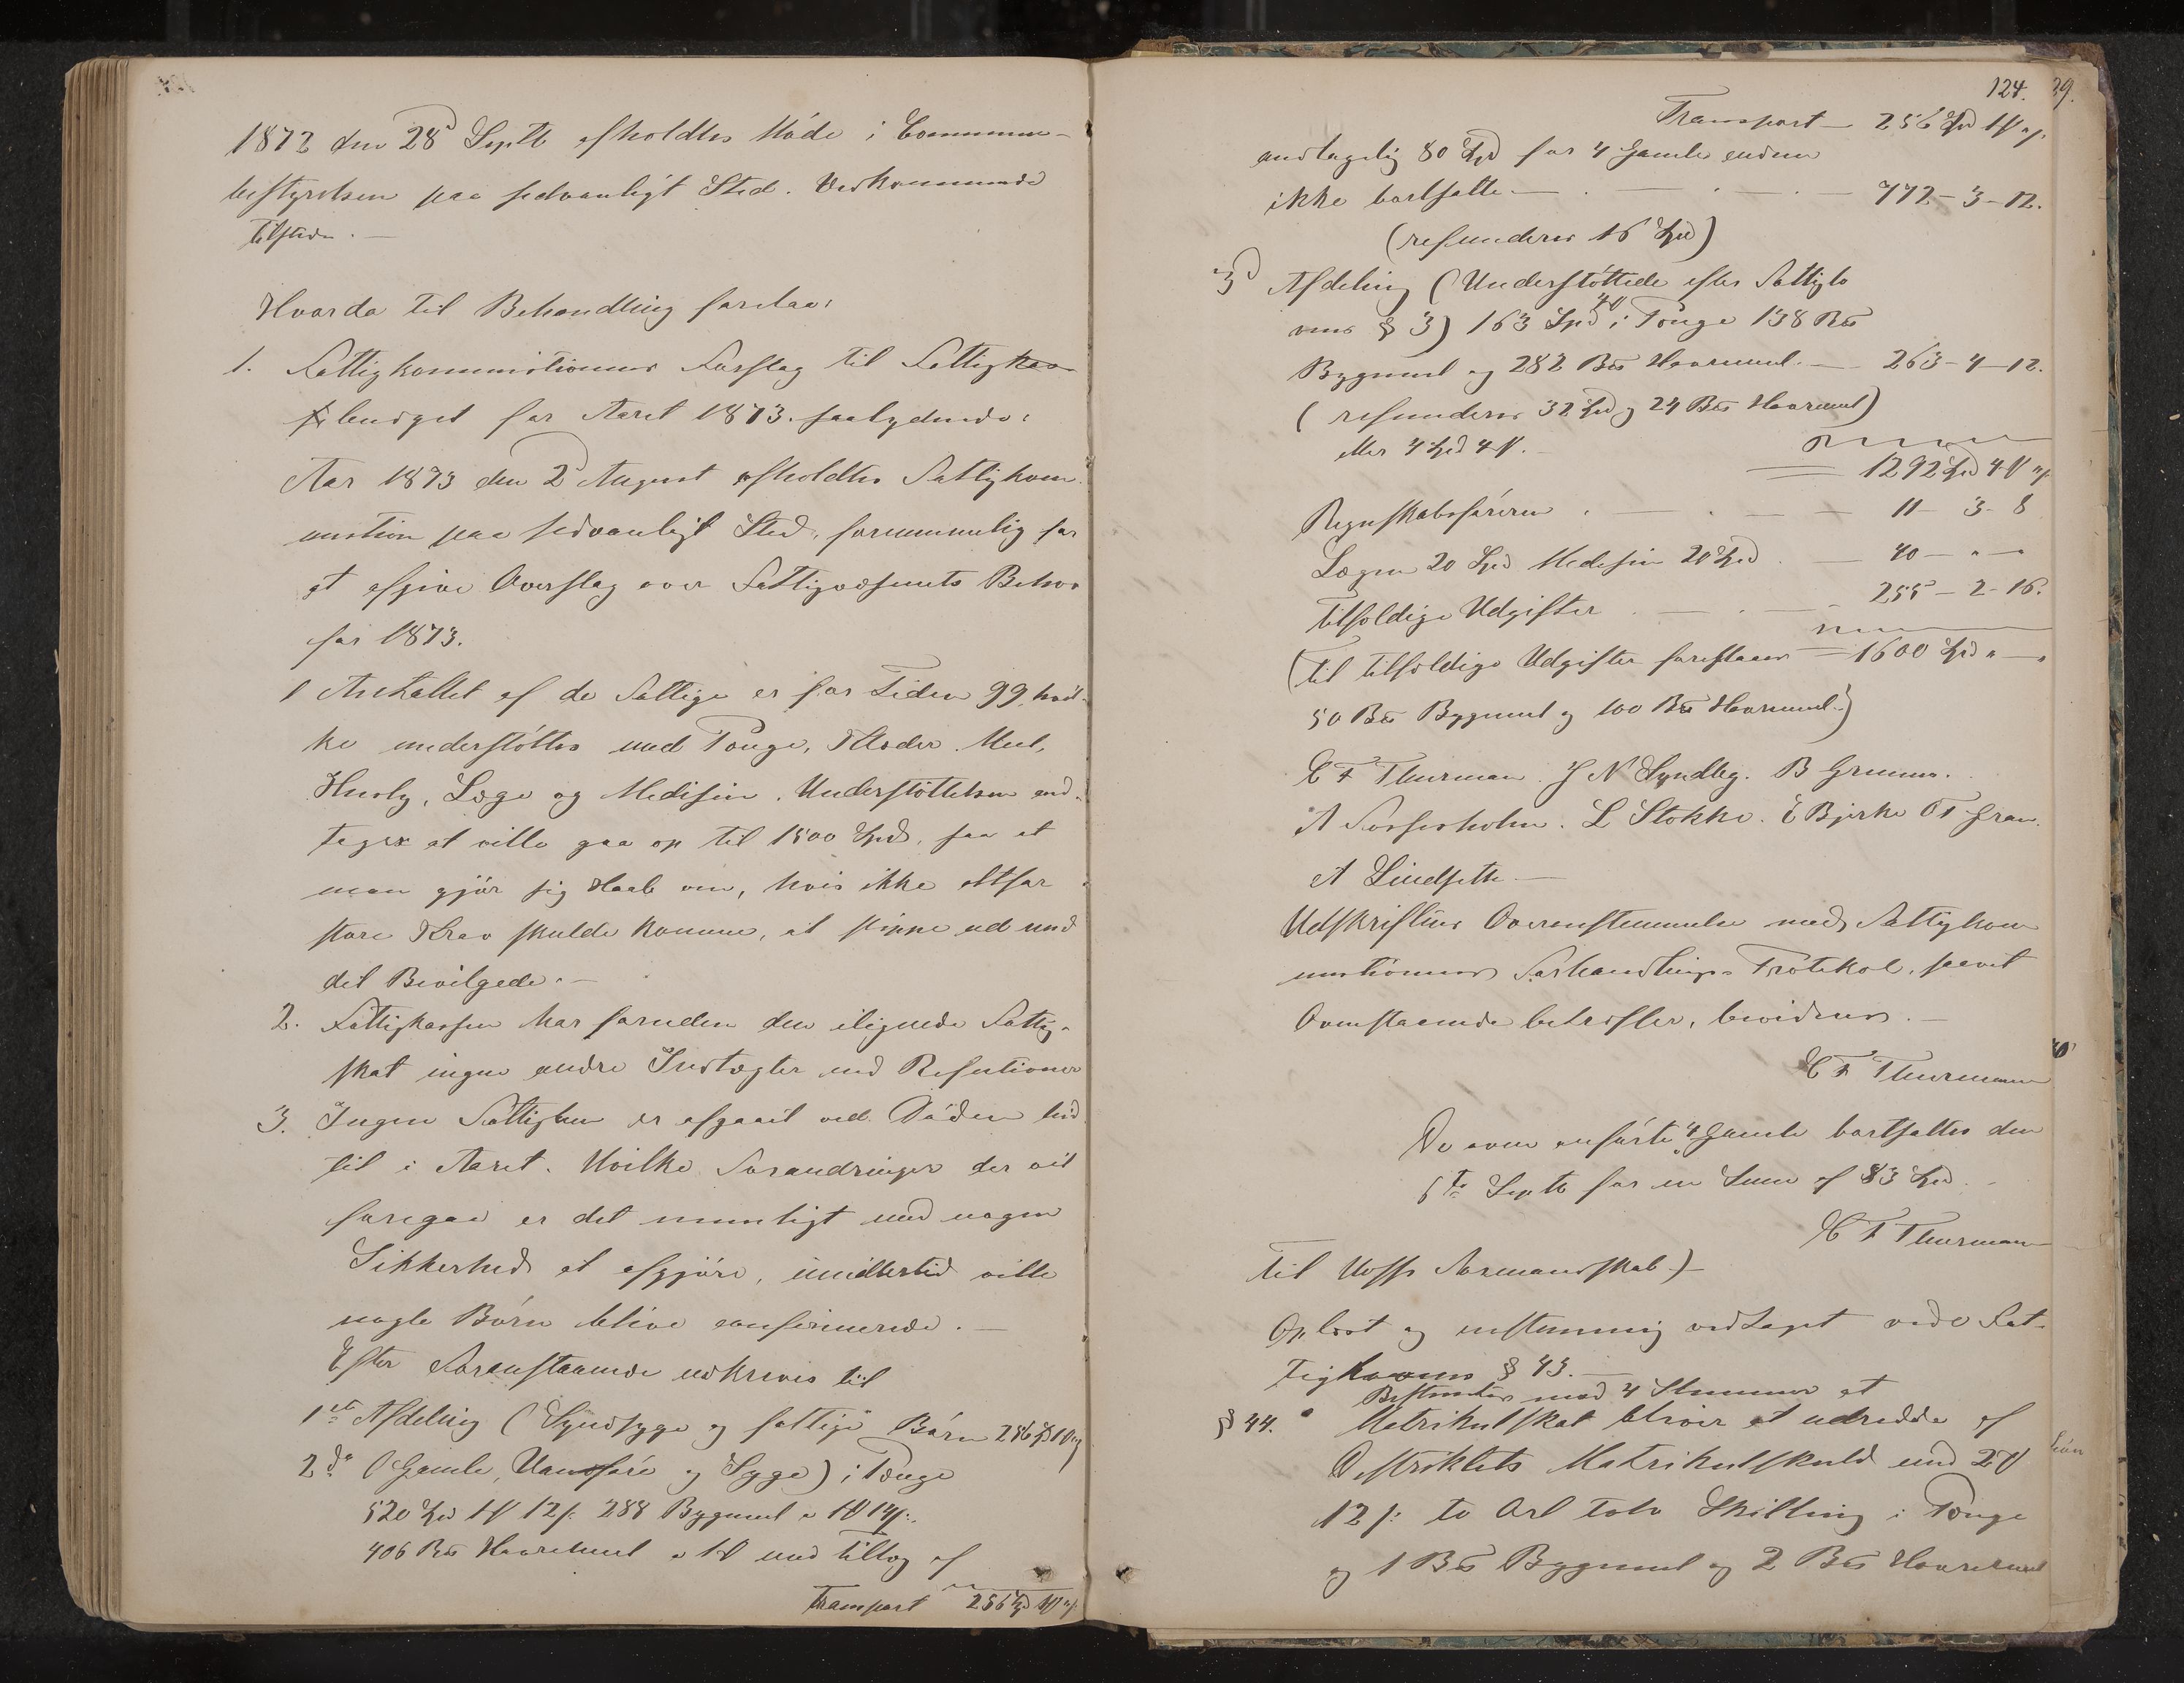 1872 den 28d Septb afholdtes Möde i Commune-
bestyrelsen paa sedvanligt Sted. Vedkommende
tilstede. —
Hvorda til Behandling foretoes:
1. Fattigkommistionens Forslag til Fattigkas-
sebudget for Aaret 1873. saalydende:
Aar 1873 den 2d August afholdtes Fattigkom-
mistion paa sedvanligt Sted, fornemmelig for
at afgive Overslag over Fattigvæsenets Behov
for 1873.
1 Antallet af de Fattige er for Tiden 99, hvil-
ke understöttes med Penge, Klæder, Mel,
Husly, Læge og Medisin. Understöttelsen and-
tages at ville gaa op til 1500 Spd, saa at
man gjör sig Haab om, hvis ikke altfor
store Krav skulde komme, at slippe ud med
det Bevilgede. —
2. Fattigkassen har foruden den ilignede Fattig-
skat ingen andre Indtægter end Refutioner
3. Ingen Fattiglem er afgaait ved Döden hid
til i Aaret. Hvilke Forandringer der vil
foregaa er det umuligt med nogen
Sikkerhed at afgjöre, imidlertid ville
nogle Börn blive confirmerede. —
Efter Foranstaaende udkreves til
1ste Afdeling (Syndsyge og fattige Börn 256
2de (Gamle, Vanföre og Syge) i Penge
520 Spd 1 12 s: 288 Bygmel a 14 s:.
406 Bs Havremel a 1 med tillæg af
Transport 256 Spd
124. 29.
Transport — 256 Spd
andtagelig 80 Spd for 4 Gamle endnu
ikke bortsatte — . — . — . — 772 - 3 - 12.
(refunderes 16 Spd)
3d Afdeling (Understöttede efter Fattiglo
vens § 3) 163 Spd i Penge 138 Bs
Bygmel og 282 Bs Havremel. — 263 - 4 - 12.
(refunderes 32 Spd og 24 Bs Havremel)
eller 4 Spd 4
1292 Spd 4
Regnskabsföreren . — . — — 11 - 3 - 8
Lægen 20 Spd Medisin 20 Spd . — 40 — " — "
Tilfældige Udgifter . — . — — 255 - 2 - 16.
(Til tilfældige Udgifter foreslaaes — 1600 Spd " — "
50 Bs Bygmel og 100 Bs Havremel.)
C F Thurman. J N Lyndbg. B Grumo.
A Forsesholm. L Stokke. E Bjerke O T Gran.
A Lindsette —
Udskriftens Overenstemmelse med Fattigkom
mistionens Forhandlings-Protokol, saavit
Ovenstaaende betræffer, bevidnes. —
C F Thurmann
De oven anförte 4 Gamle bortsattes den
6te Septb for en Sum af 83 Spd.
C F Thurman
Til Hoffs Formandskab)—
Oplæst og enstemmig vedtaget vide Fat-
tiglovens § 43. —
Bestemtes med 4 Stemmer at
§ 44. Matrikulskat bliver at udredde af
Distriktets Matrikulskuld med 2
12 s: to Ort tolv Skilling i Penge
og 1 Bs Bygmel og 2 Bs Havremel